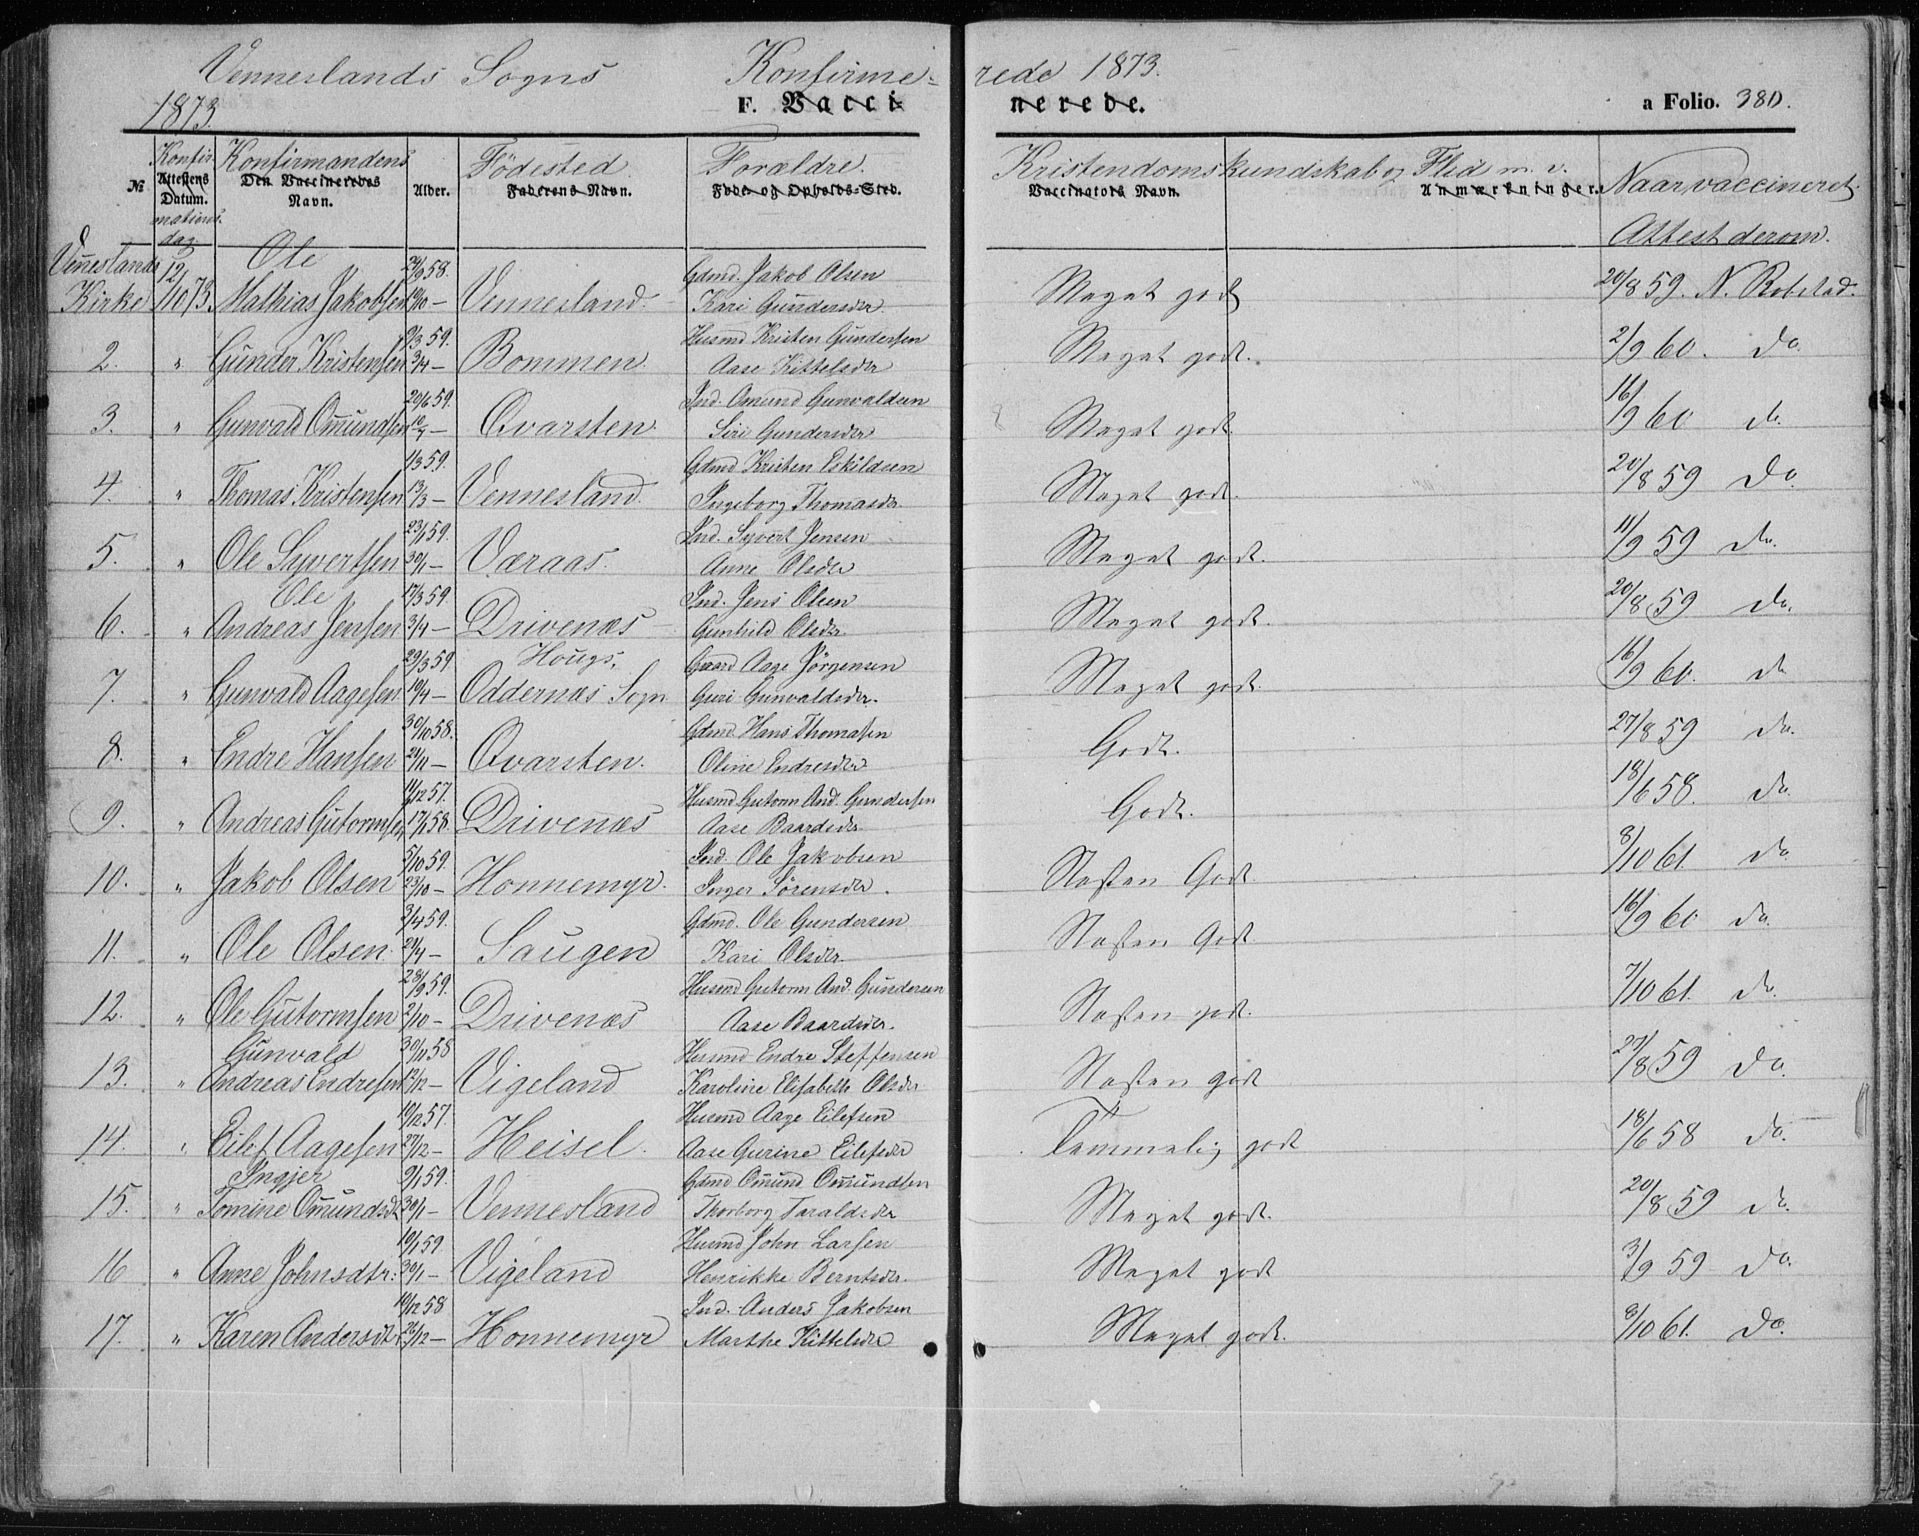 Venneslands Sogns Konfirme- rede 1873.
1873. F. Vacci- nerede. a Folio. 380.
№ Konfir- Attestens Datum. mations- dag Konfirmandens Den Vaccineredes Navn. Alder. Födested Faderens Navn. Forældre. Føde- og Opholds-Sted. Kristendomskundskab og Flid m. v. Vaccinators Navn. Anmærkninger. Naar vaccineret.
Attest derom.
Venneslands 12/10 73. Ole 29/9 58. Gdmd. Jakob Olsen
Kirke Mathias Jakobsen /10 — Vennesland Kari Gundersdtr. Meget godt 20/8 59. N. Robstad.
9/3 59. Husmd Kristen Gundersen
2. " Gunder Kristensen 3/4 — Bommen. Aase Kittelsdtr Meget godt. 2/9 60. do.
20/6 59. Ind. Omund Gunvaldsen
3. " Gunvald Omundsen 10/7 — Qvarsten. Siri Gundersdtr Meget godt. 16/9 60 do.
1/3 59. Gdmd Kristen Eskildsen
4. " Thomas Kristensen 13/3 — Vennesland. Ingeborg Thomasdtr Meget godt. 20/8 59 do.
23/1 59. Ind. Syvert Jensen
5. " Ole Syvertsen 30/1 — Væraas. Anne Olsdtr Meget godt. 11/9 59 do.
Ole 17/3 59. Ind. Jens Olsen
6. " Andreas Jensen 3/4 — Drivenæs Gunhild Olsdtr. Meget godt. 20/8 59 do.
29/3 59 Hougs, Gaard Aage Jørgensen
7. " Gunvald Aagesen 10/4 — Oddernæs Sogn Guri Gunvaldsdtr. Meget godt. 16/9 60. do
30/10 58. Gdmd. Hans Thomasen
8. " Endre Hansen 21/11 — Qvarsten. Oline Endresdtr Godt. 27/8 59 do.
/12 57. Husmd Gutorm And. Gundersen
9. " Andreas Gutormsen 17/1 58. Drivenæs Aase Baardsdtr Godt. 18/6 58. do.
5/10 59. Ind. Ole Jakobsen
10. " Jakob Olsen 23/10 — Honnemyr. Inger Sørensdtr. Næsten Godt 8/10 61. do
3/4 59. Gdmd. Ole Gundersen
11. " Ole Olsen. 21/4 — Saugen Kari Olsdtr. Næsten Godt 16/9 60 do.
28/9 59. Husmd Gutorm And. Gundersen
12. " Ole Gutormsen 2/10 — Drivenæs Aase Baardsdtr. Næsten godt. 7/10 61. do.
Gunvald 30/11 58 Husmd Endre Steffensen
13. " Andreas Endresen 12/12 — Vigeland Karoline Elisabeth Olsdtr Næsten godt 27/8 59 do.
10/12 57. Husmd Aage Eilefsen
14. " Eilef Aagesen 27/12 — Heisel. Aase Gurine Eilefsdtr Temmelig godt 18/6 58 do.
Ingjer 9/1 59. Gdmd Omund Omundsen
15. " Tomine Omundsdtr 30/1 — Vennesland Thorborg Taraldsdtr Meget godt. 20/8 59 do.
10/1 59 Husmd John Larsen
16 " Anne Johnsdtr. 30/1 — Vigeland Henrikke Berntsdtr. Meget godt 3/9 59 do.
10/12 58 Ind. Anders Jakobsen
17. " Karen Andersdtr /12 — Honnemyr Marthe Kittelsdtr Meget godt. 8/10 61. do.